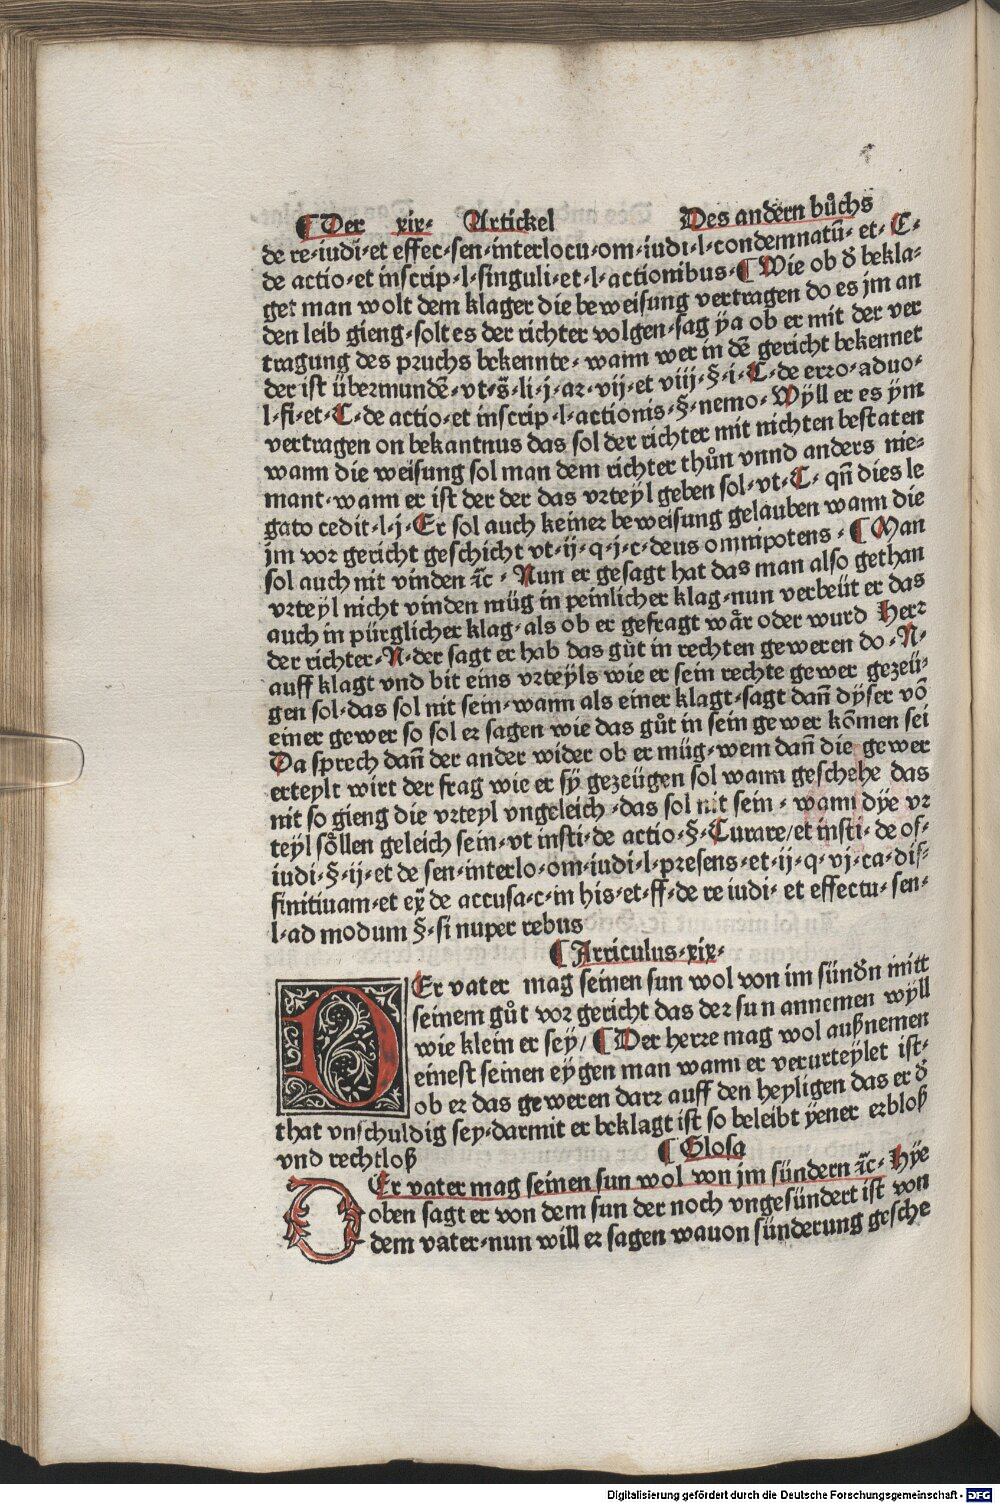 ¶ Der xix· Artickel Des andern bůchs
de re·iudi·et effec·sen·interlocu·om·iudi·l·condemnatū·et·C·
de actio·et inscrip·l·singuli·et·l·actionibus·¶ Wie ob d̕ bekla-
get man wolt dem klager die beweisung vertragen do es jm an
den leib gieng·solt es der richter volgen·sag ÿa ob er mit der ver
tragung des pruchs bekennte·wann wer in dē gericht bekennet
der ist übermundē·vt·s̄·li·j·ar·vij·et viij·§·i·C·de erro·aduo·
l·fi·et·C·de actio·et inscrip·l·actionis·§·nemo·Wÿll er es ÿm
vertragen on bekantnus das sol der richter mit nichten bestaten
wann die weisung sol man dem richter thůn vnnd anders nie-
mant·wann er ist der der das vrteyl geben sol·vt·C· qn̄ dies le
gato cedit·l·j·Er sol auch keiner beweisung gelauben wann die
jm vor gericht geschicht vt·ij·q·j·c·deus omnipotens·¶ Man
sol auch nit vinden ꝛc̄· Nun er gesagt hat das man also gethan
vrteyl nicht vinden müg in peinlicher klag·nun verbeüt er das
auch in pürglicher klag·als ob er gefragt wår oder wurd Herr
der richter·N·der sagt er hab das gůt in rechten geweren do·N·
auff klagt vnd bit eins vrteyls wie er sein rechte gewer gezeü-
gen sol·das sol nit sein·wann als einer klagt·sagt dan̄ dÿser vō
einer gewer so sol er sagen wie das gůt in sein gewer kōmen sei
Da sprech dan̄ der ander wider ob er müg·wem dan̄ die gewer
erteylt wirt der frag wie er sÿ gezeügen sol wann geschehe das
nit so gieng die vrteyl vngeleich·das sol nit sein·wann dÿe vr
teyl söllen geleich sein·vt insti·de actio·§·Curare/et insti·de of-
iudi·§·ij·et de sen·interlo·om·iudi·l·presens·et·ij·q·vj·ca·dif-
finitiuam·et ex̄ de accusa·c·in his·et·ff·de re iudi·et effectu·sen·
l·ad modum §·si nuper rebus
¶ Arriculus·xix·
DEr vater mag seinen sun wol von im sünd̕n mitt
seinem gůt vor gericht das der sun annemen wÿll
wie klein er sey/ ¶ Der herre mag wol außnemen
einest seinen eÿgen man wann er verurteÿlet ist·
ob er das geweren darr auff den heyligen das er d̕
that vnschuldig sey·darmit er beklagt ist so beleibt ÿener erbloß
vnd rechtloß
¶ Glosa
DEr vater mag seinen sun wol von jm sündern ꝛc̄·Hÿe
oben sagt er von dem sun der noch vngesündert ist von
dem vater·nun will er sagen wauon sünderung gesche
Digitalisierung gefördert durch die Deutsche Forschungsgemeinschaft - DFG